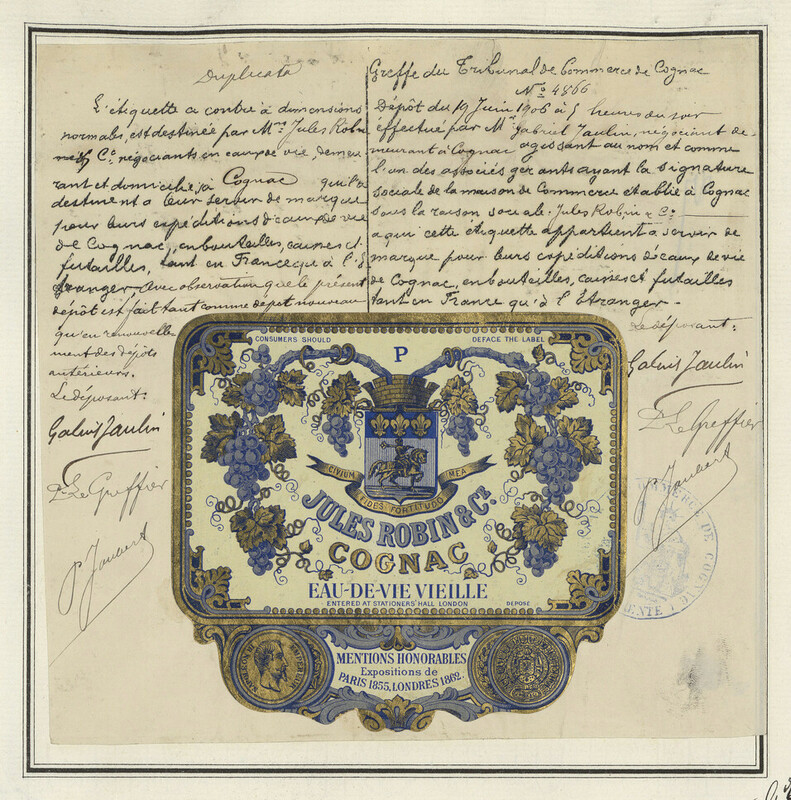 Duplicata
L'étiquette ci contre à dimensions
normales, est destinée par Mrs Jules Robin
& Co, négociants en eaux de vie, demeu
rant et domiciliés à Cognac qui la
destinent à leur servir de marque
pour leurs expéditions d'eaux de vie
de Cognac, en bouteilles, caisses et
futailles, tant en France qu'à l'E
tranger - avec observation que le présent
dépôt est fait tant comme dépôt nouveau
qu'en renouvelle-
ment des dépôts
antérieurs.
Le déposant:
Le Greffier
Greffe du Tribunal de Commerce de Cognac
No 4866
Dépôt du 19 Juin 1906 à 5 heures du soir
effectué par Mr Gabriel Jaulin, négociant de-
meurant à Cognac agissant au nom et comme
l'un des associés gérants ayant la signature
sociale de la maison de Commerce établie à Cognac
sous la raison sociale: Jules Robin & Co
à qui cette étiquette appartient à servir de
marque pour leurs expéditions d'eaux de vie
de Cognac, en bouteilles, caisses et futailles
tant en France qu'à l'Etranger -
Le déposant:
Le Greffier
CONSUMERS SHOULD DEFACE THE LABEL
P
CIVIUM MEA
FIDES FORTITUDO
JULES ROBIN & Co.
COGNAC
EAU-DE-VIE VIEILLE
ENTERED AT STATIONERS' HALL LONDON DEPOSÉ
MENTIONS HONORABLES
Expositions de
PARIS 1855, LONDRES 1862.
COMMERCE DE COGNAC